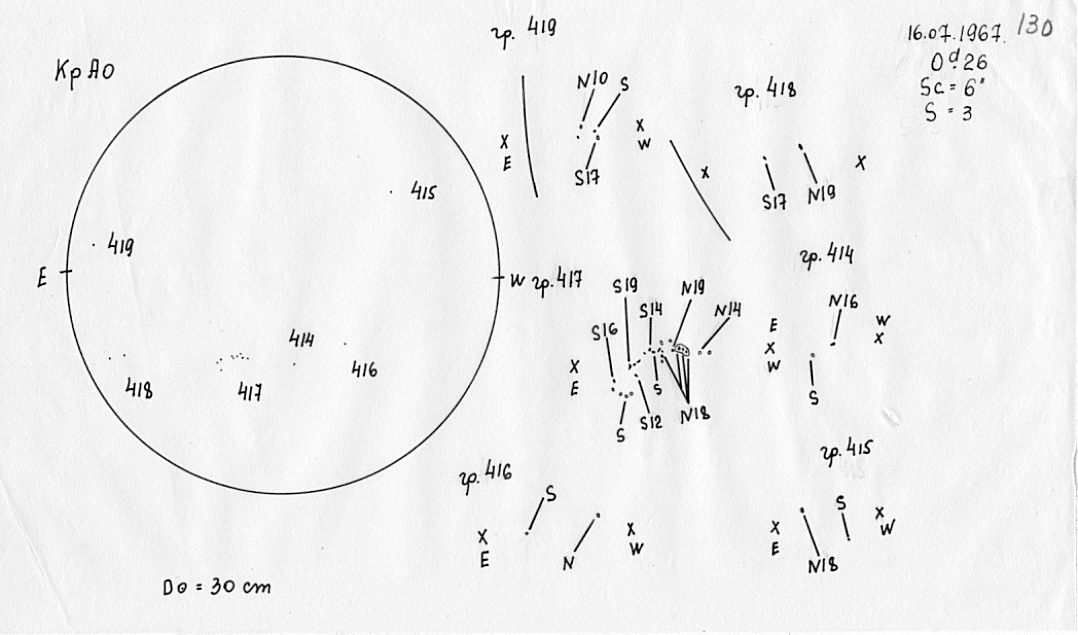 гр. 419
16.07.1967.
130
0ᵈ.26
Sc = 6"
S = 3
КрАО
N10
S
гр. 418
X
E
X
W
S17
X
S17
N19
X
415
419
E
W
гр. 417
гр. 414
S19
N19
S14
N14
S16
N16
E
X
W
W
X
414
416
X
E
S
418
417
S
S12
N18
S
гр. 416
гр. 415
S
S
X
E
X
W
X
E
X
W
N
N18
D⊙ = 30 cm